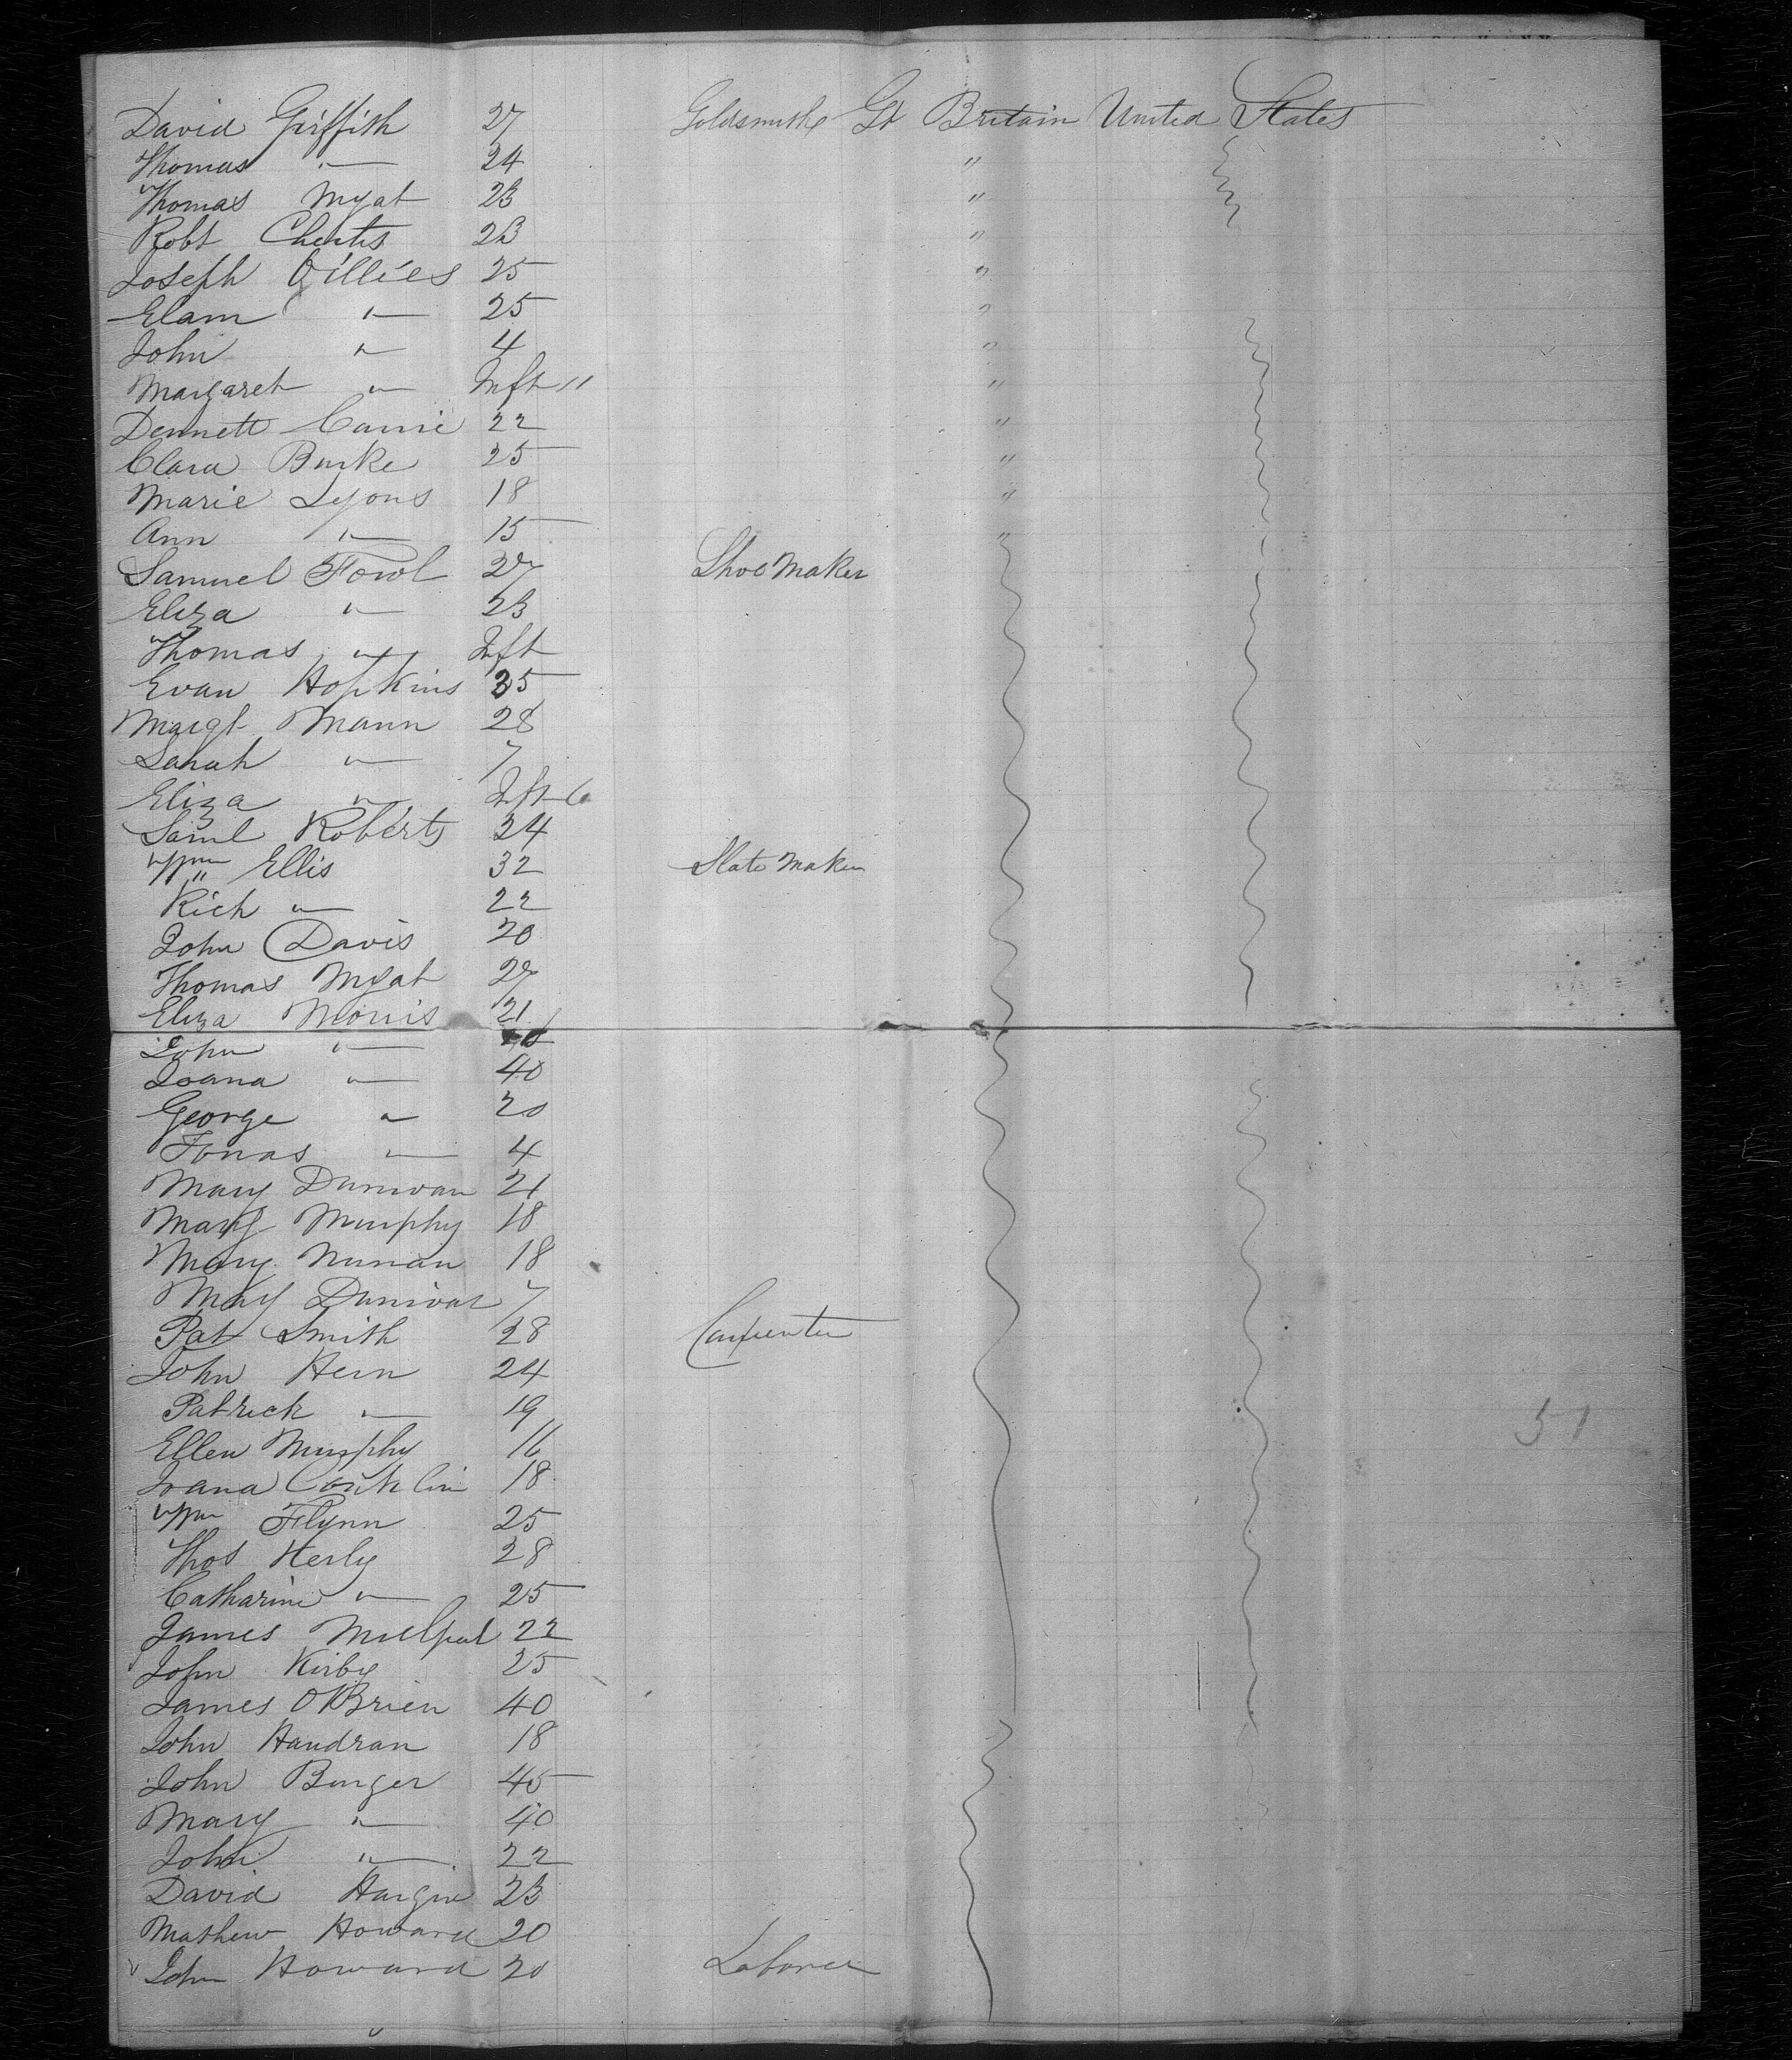 David Griffith 27 Goldsmith Gt Britain United States
Thomas " 24 "
Thomas Myat 23 "
Robt 23 "
Joseph Gillies 25 "
Elam " 25 "
John " 4 "
Margaret " Inft 11 "
Dennett Carrie 22 "
Clara Burke 25 "
Marie Lyons 18 "
Ann " 15 "
Samuel Fowl 27 Shoe Maker
Eliza " 23
Thomas " Inft
Evan Hopkins 35
Margt Mann 28
Sarah " 7
Eliza " Inft 6
Saml Roberts 24
Wm Ellis 32 Slate Maker
Rich " 22
John Davis 20
Thomas Myat 27
Eliza Morris 21
John "
Joana " 40
George " 20
Jonas " 4
Mary Dunivan 21
Mary Murphy 18
Mary Nunan 18
Mary Dunivan 7
Pat Smith 28 Carpenter
John Hern 24
Patrick " 19
Ellen Murphy 16
Joana Conklin 18
Wm Flynn 25
Thos Herly 28
Catharine " 25
James 22
John Kirby 25
James O'Brien 40
John Handran 18
John Burger 45
Mary " 40
John " 22
David 23
Mathew Howard 20
John Howard 20 Laborer
51